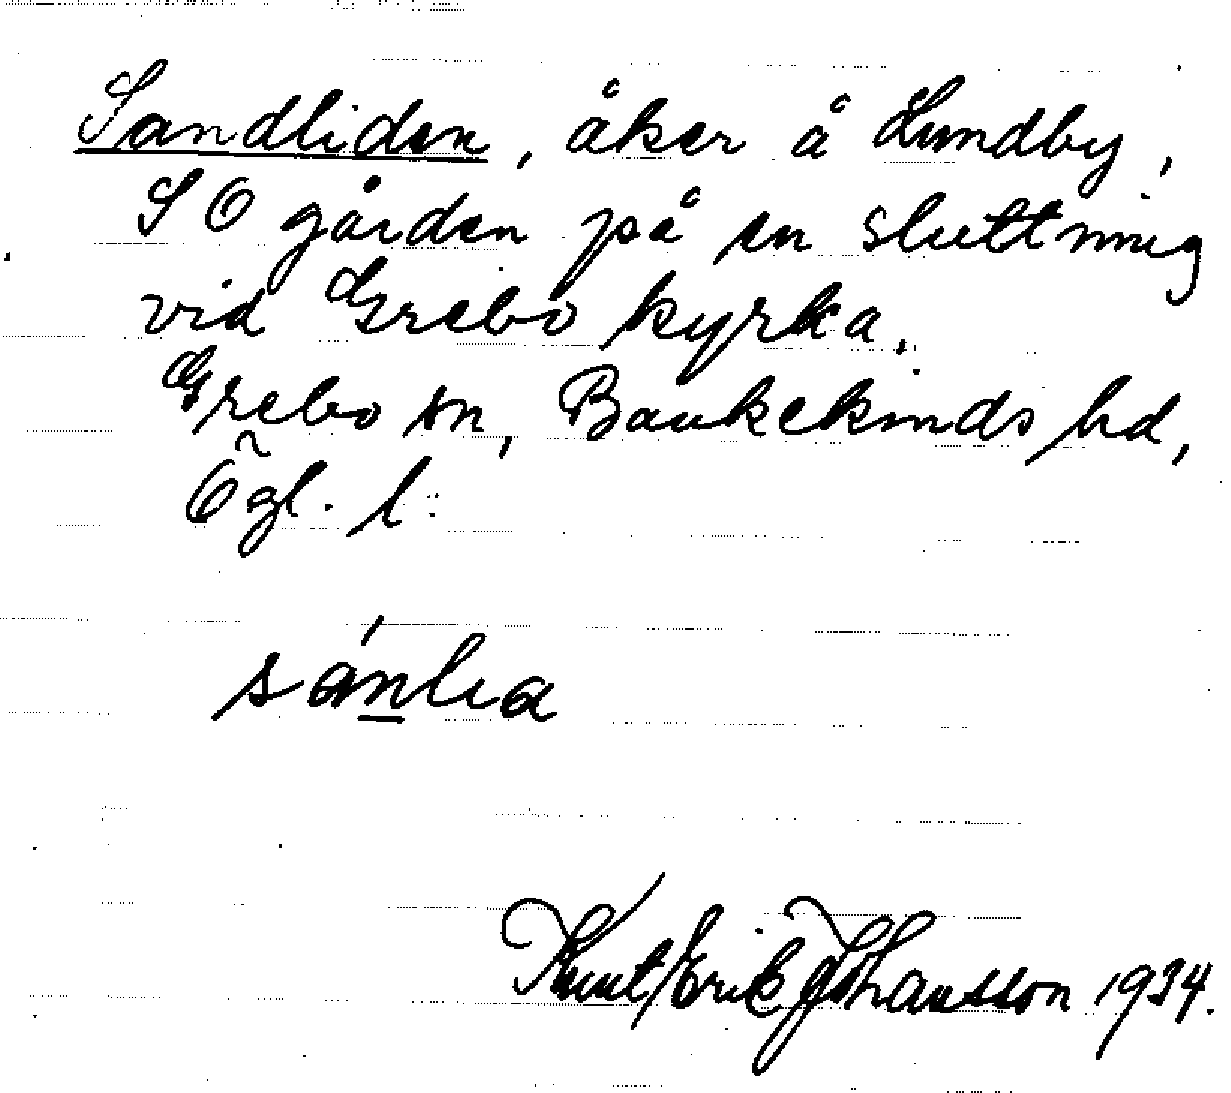 Sandliden, åker å Lundby,
SO gården på en sluttning
vid Grebo kyrka.
Grebo sn, Bankekinds hd,
Ögl. l:
sánlia
Knut/Erik Johansson 1934.